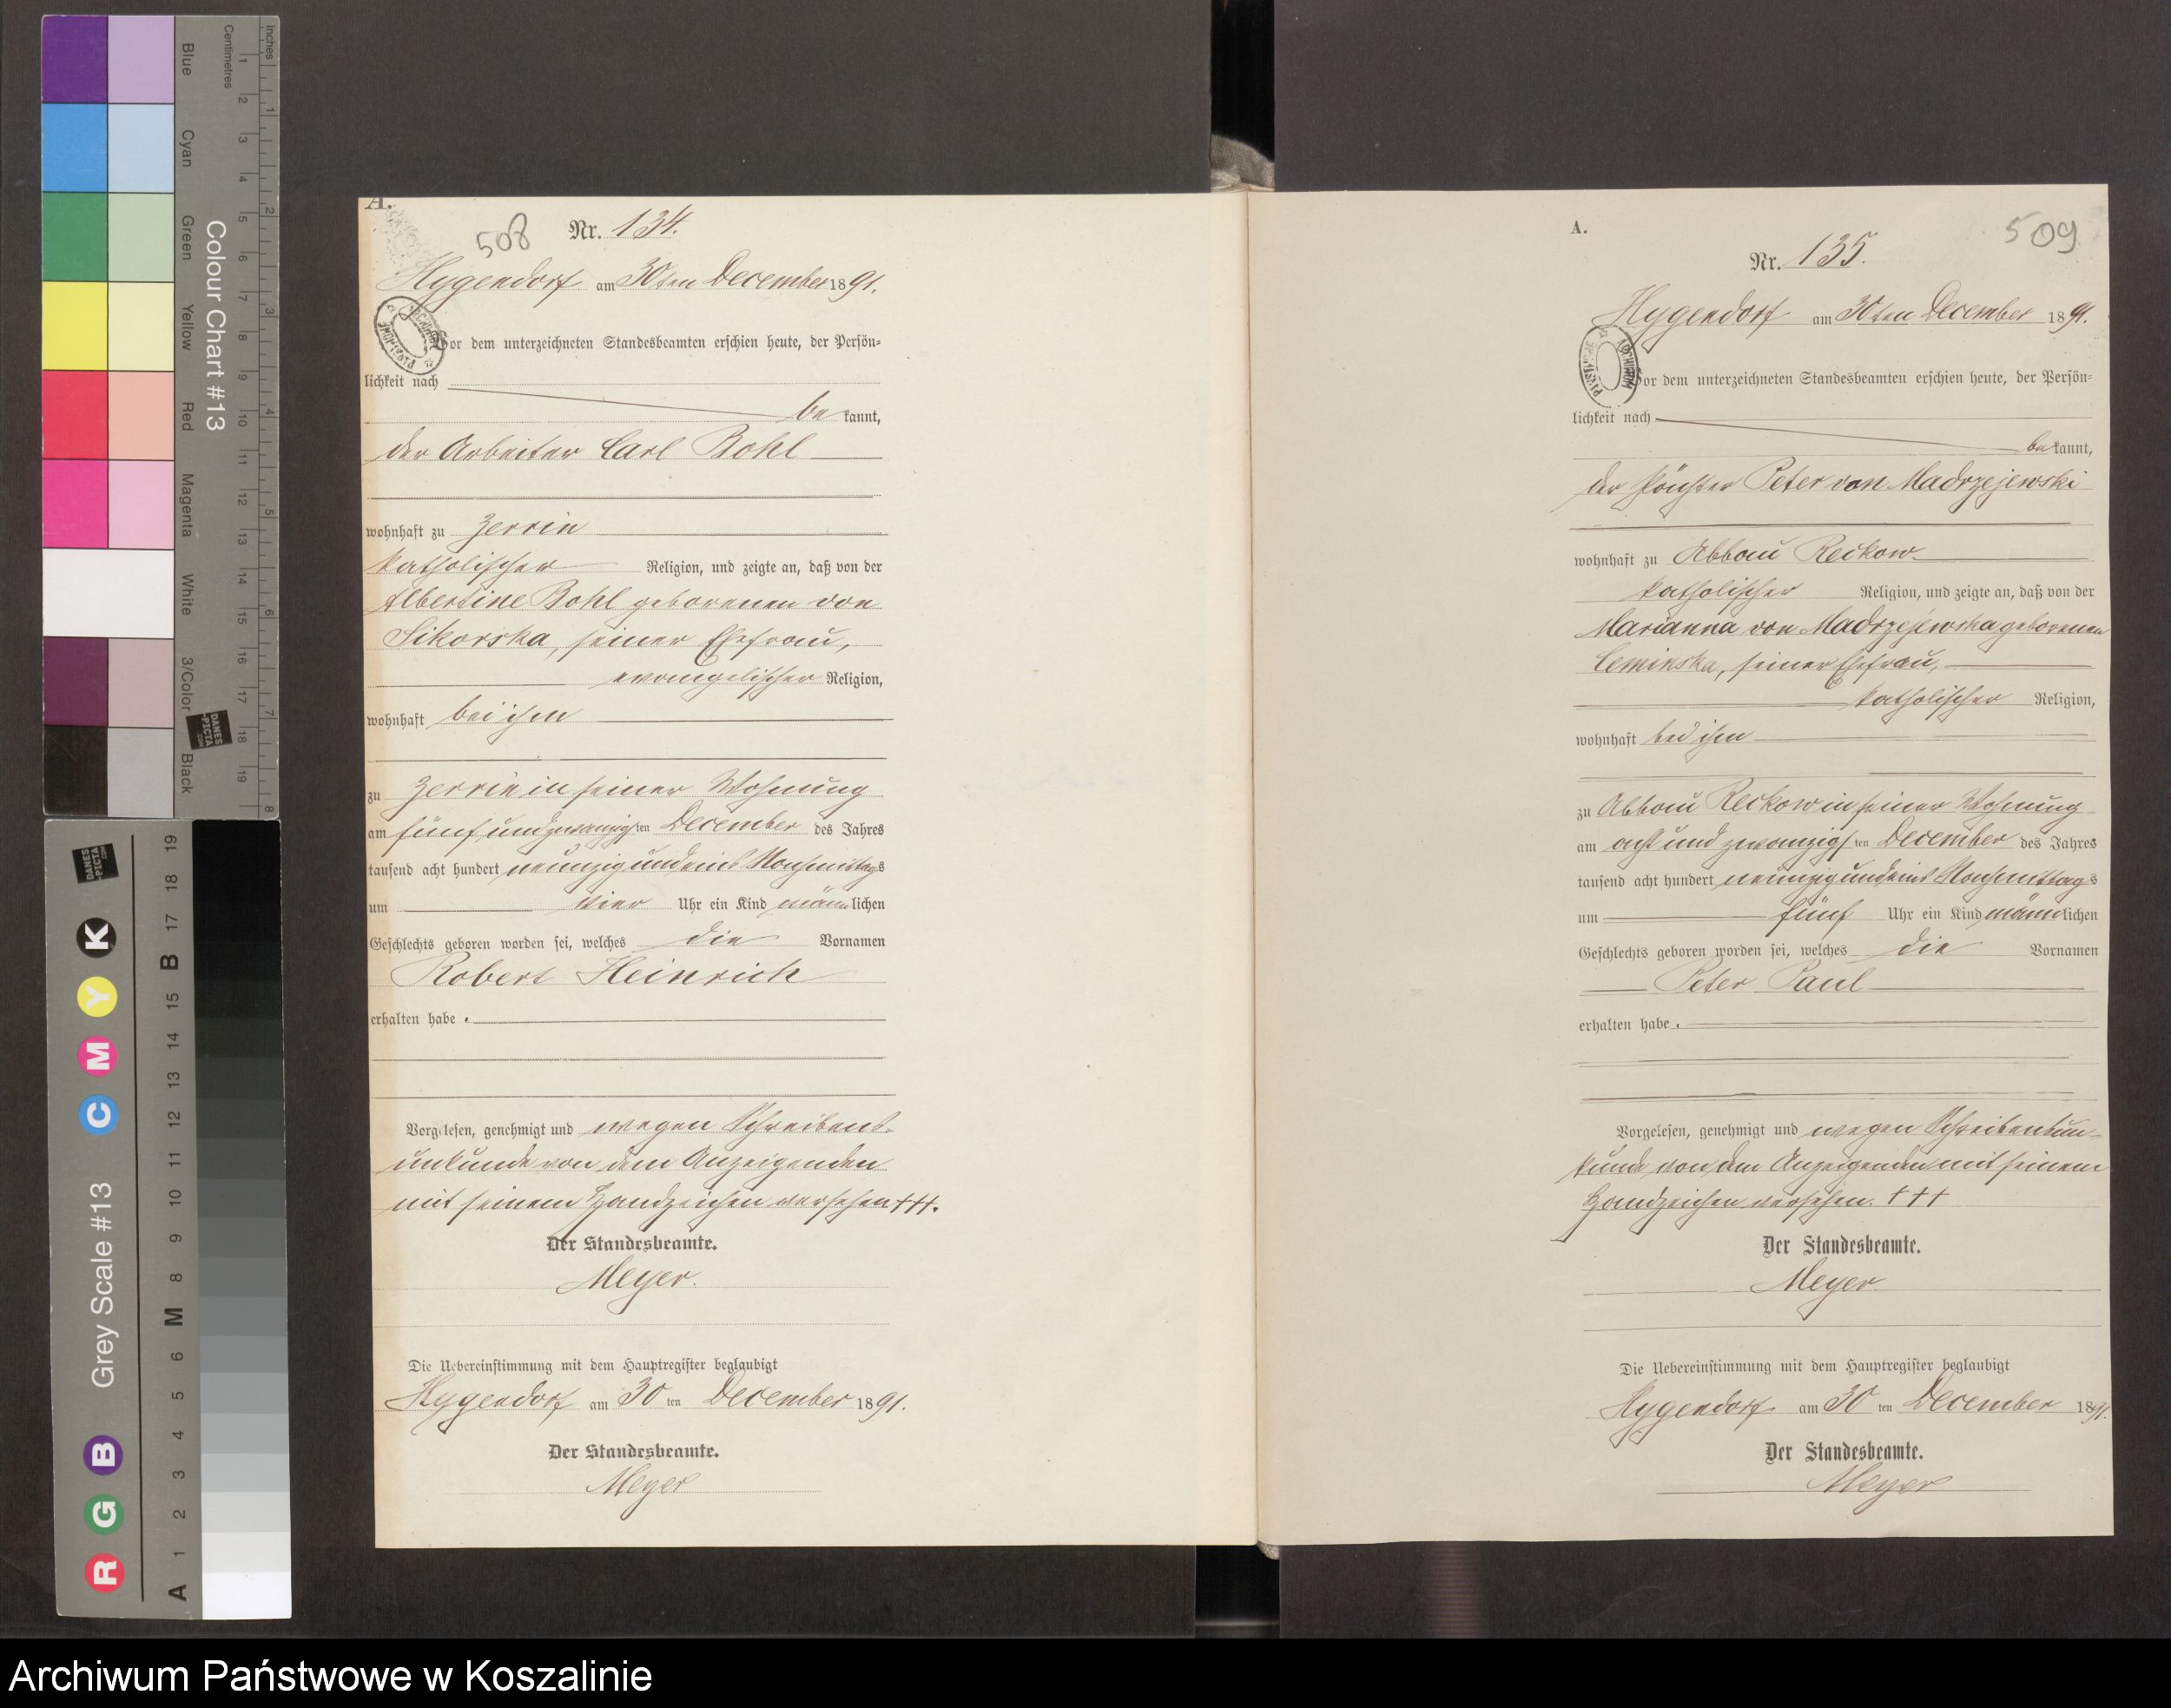 Inches
Centimetres
Colour Chart #13
Blue
Cyan
Green
Yellow
Red
Magenta
White
3/Color
Black
DANES
-PICTA
.COM
Grey Scale #13
R G B C M Y K
A 1 2 3 4 5 6 M 8 9 10 11 12 13 14 15 B 17 18 19
A.
508
Nr. 134.
Hygendorf am 30ten December 1891.
Vor dem unterzeichneten Standesbeamten erschien heute, der Persön-
lichkeit nach
be kannt,
der Arbeiter Carl Bohl
wohnhaft zu Zerrin
katholischer Religion, und zeigte an, daß von der
Albertine Bohl geborenen von
Sikorska, seiner Ehefrau,
evangelischer Religion,
wohnhaft bei ihm
zu Zerrin in seiner Wohnung
am fünf und zwanzigsten December des Jahres
tausend acht hundert neunzig und eins Nachmittags
um vier Uhr ein Kind männlichen
Geschlechts geboren worden sei, welches die Vornamen
Robert Heinrich
erhalten habe.
Vorgelesen, genehmigt und wegen Schreibens-
unkunde von dem Anzeigenden
mit seinem Handzeichen versehen +++.
Der Standesbeamte.
Meyer.
Die Uebereinstimmung mit dem Hauptregister beglaubigt
Hygendorf am 30 ten December 1891.
Der Standesbeamte.
Meyer
A.
509
Nr. 135.
Hygendorf am 30ten December 1891.
Vor dem unterzeichneten Standesbeamten erschien heute, der Persön-
lichkeit nach
be kannt,
der Pächter Peter von Madrzejewski
wohnhaft zu Abbau Reckow
katholischer Religion, und zeigte an, daß von der
Marianna von Madrzejewska geborenen
Ceminska, seiner Ehefrau,
katholischer Religion,
wohnhaft bei ihm
zu Abbau Reckow in seiner Wohnung
am acht und zwanzigsten December des Jahres
tausend acht hundert neunzig und eins Nachmittags
um fünf Uhr ein Kind männlichen
Geschlechts geboren worden sei, welches die Vornamen
Peter Paul
erhalten habe.
Vorgelesen, genehmigt und wegen Schreibensun-
kunde von dem Anzeigenden mit seinem
Handzeichen versehen. +++
Der Standesbeamte.
Meyer
Die Uebereinstimmung mit dem Hauptregister beglaubigt
Hygendorf am 30 ten December 1891.
Der Standesbeamte.
Meyer
Archiwum Państwowe w Koszalinie